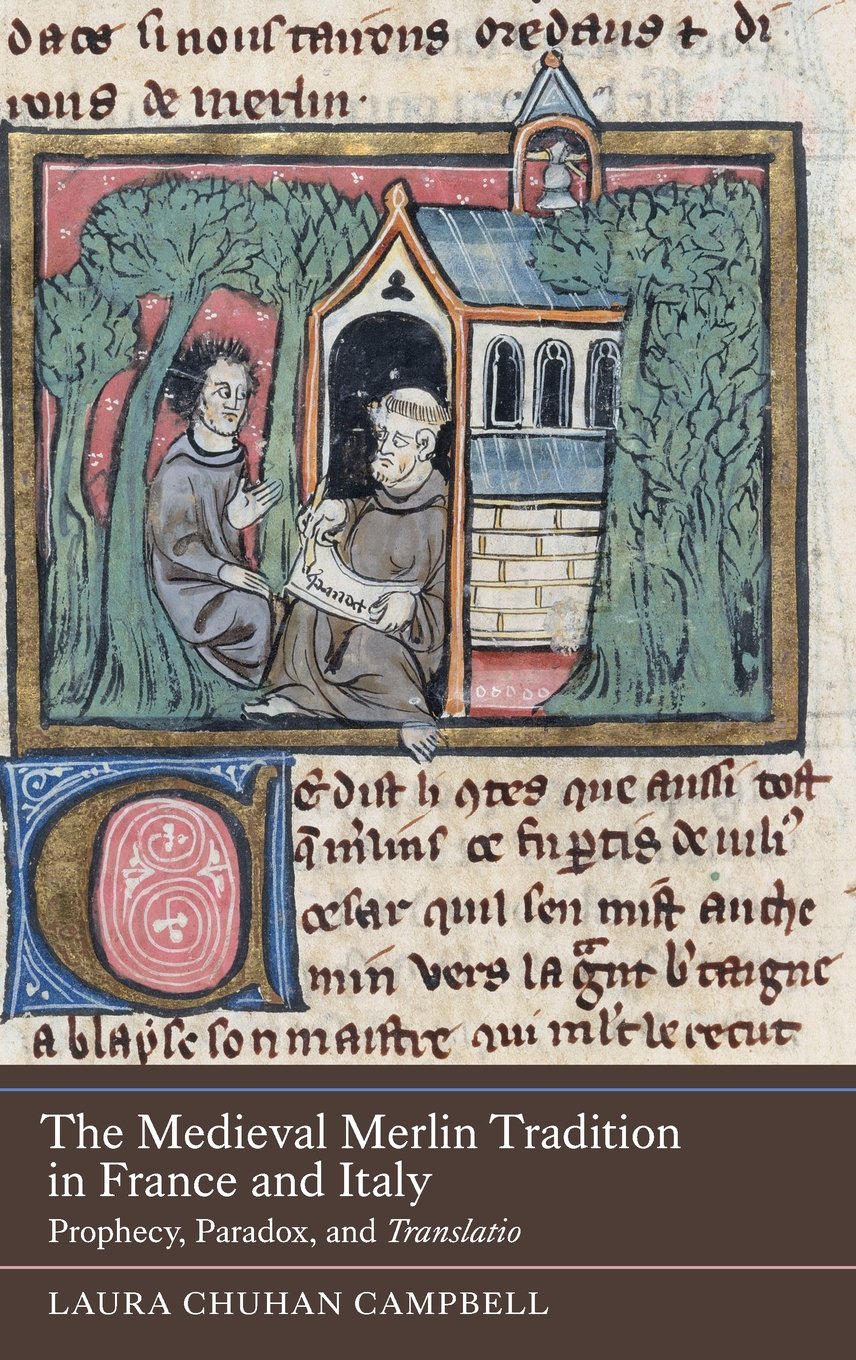 dace si nous tairons ore daus & di
rons de merlin·
& dist li 9tes que aussi tost
q̄ m̄lins se fu ꝑtis de iuli⁹
cesar quil sen mist au che
min vers la gͣnt b'taigne
a blayse son maistre qui m̄lt le recut
The Medieval Merlin Tradition
in France and Italy
Prophecy, Paradox, and Translatio
LAURA CHUHAN CAMPBELL